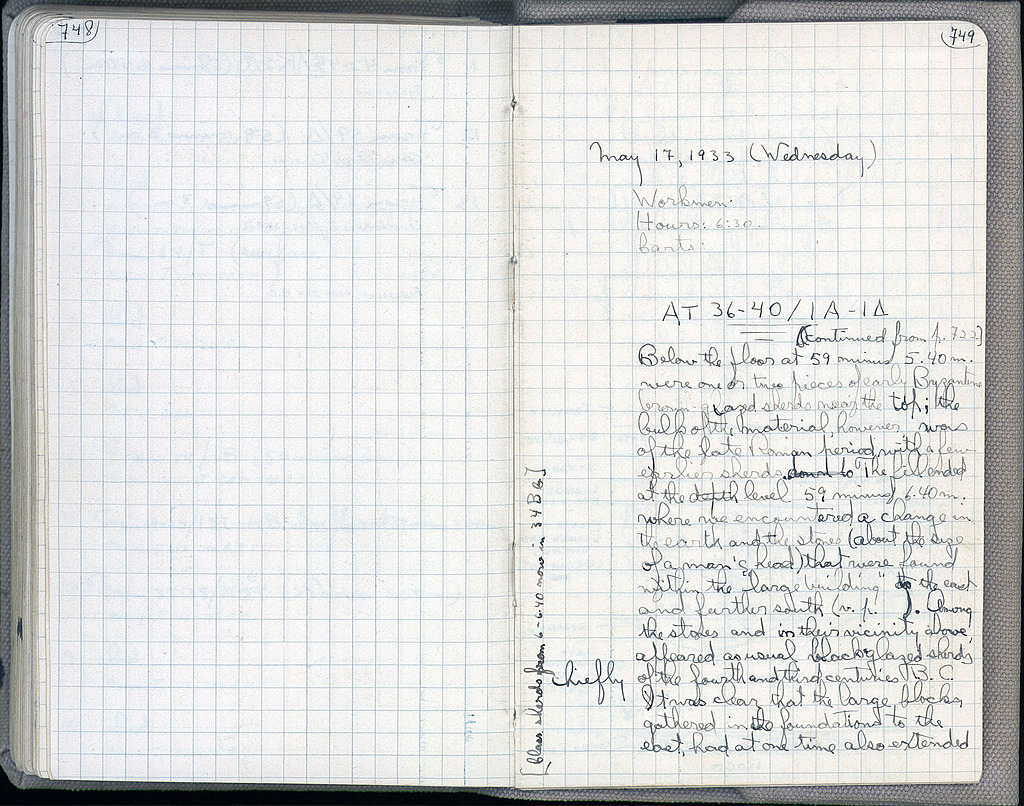 748
749
May 17, 1933 (Wednesday)
Workmen:
Hours: 6:30.
Carts:
AT 36-40/1A-1Δ
(Continued from p. 722)
Below the floor at 59 minus 5.40 m.
were one or two pieces of early Byzantine
brown-glazed sherds near the top; the
bulk of the material, however, was
of the late Roman period, with a few
earlier sherds. down to The fill ended
at the depth level 59 minus 6.40 m.
where we encountered a change in
the earth and the stones (about the size
of a man's head) that were found
within the "large building" to the east
and further south (v. p. ). Among
the stones and in their vicinity above,
appeared as usual black-glazed sherds
chiefly of the fourth and third centuries B.C.
It was clear that the large blocks,
gathered in the foundations to the
east, had at one time also extended
[Glass sherds from 6-6.40 now in 34 BG]